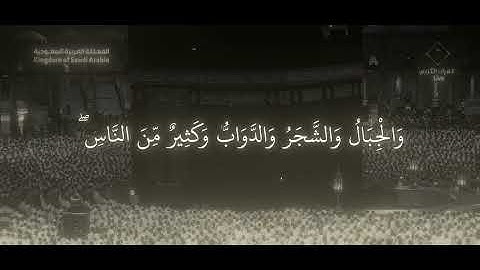 المملكة العربية السعودية
Kingdom of Saudi Arabia
وَالْجِبَالُ وَالشَّجَرُ وَالدَّوَابُّ وَكَثِيرٌ مِّنَ النَّاسِ ۖ
Live